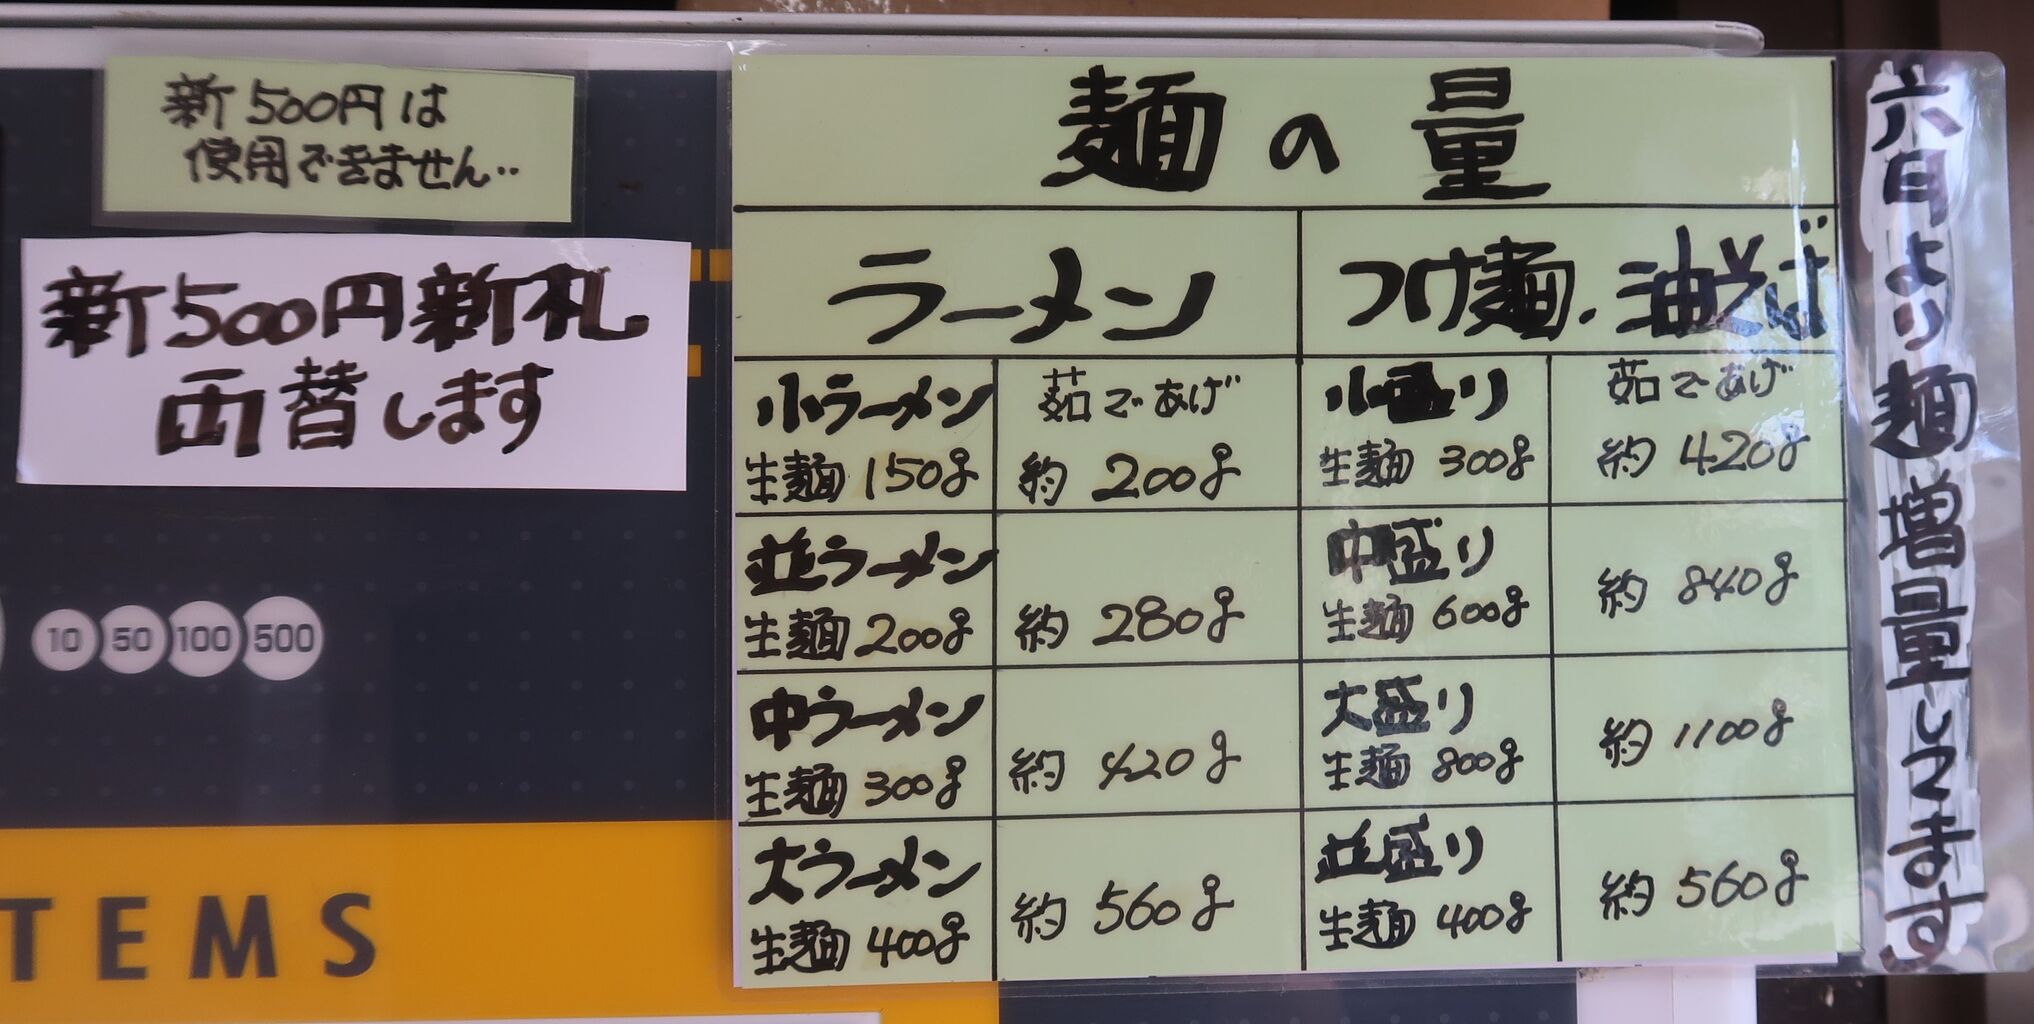 新500円は
使用できません..
新500円新札
両替します
10 50 100 500
TEMS
麺の量
ラーメン
つけ麺.油そば
小ラーメン
生麺 150g
茹であげ
約 200g
小盛り
生麺 300g
茹であげ
約 420g
並ラーメン
生麺 200g
約 280g
中盛り
生麺 600g
約 840g
中ラーメン
生麺 300g
約 420g
大盛り
生麺 800g
約 1100g
大ラーメン
生麺 400g
約 560g
並盛り
生麺 400g
約 560g
六月より麺増量します